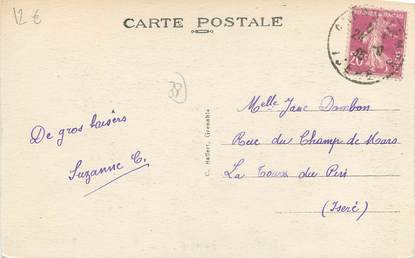 12 €
CARTE POSTALE
38
De gros baisers
Suzanne C.
C. Haffert, Grenoble
Melle Jane Dombon
Rue du Champ de Mars
La Tour du Pin
(Isère)